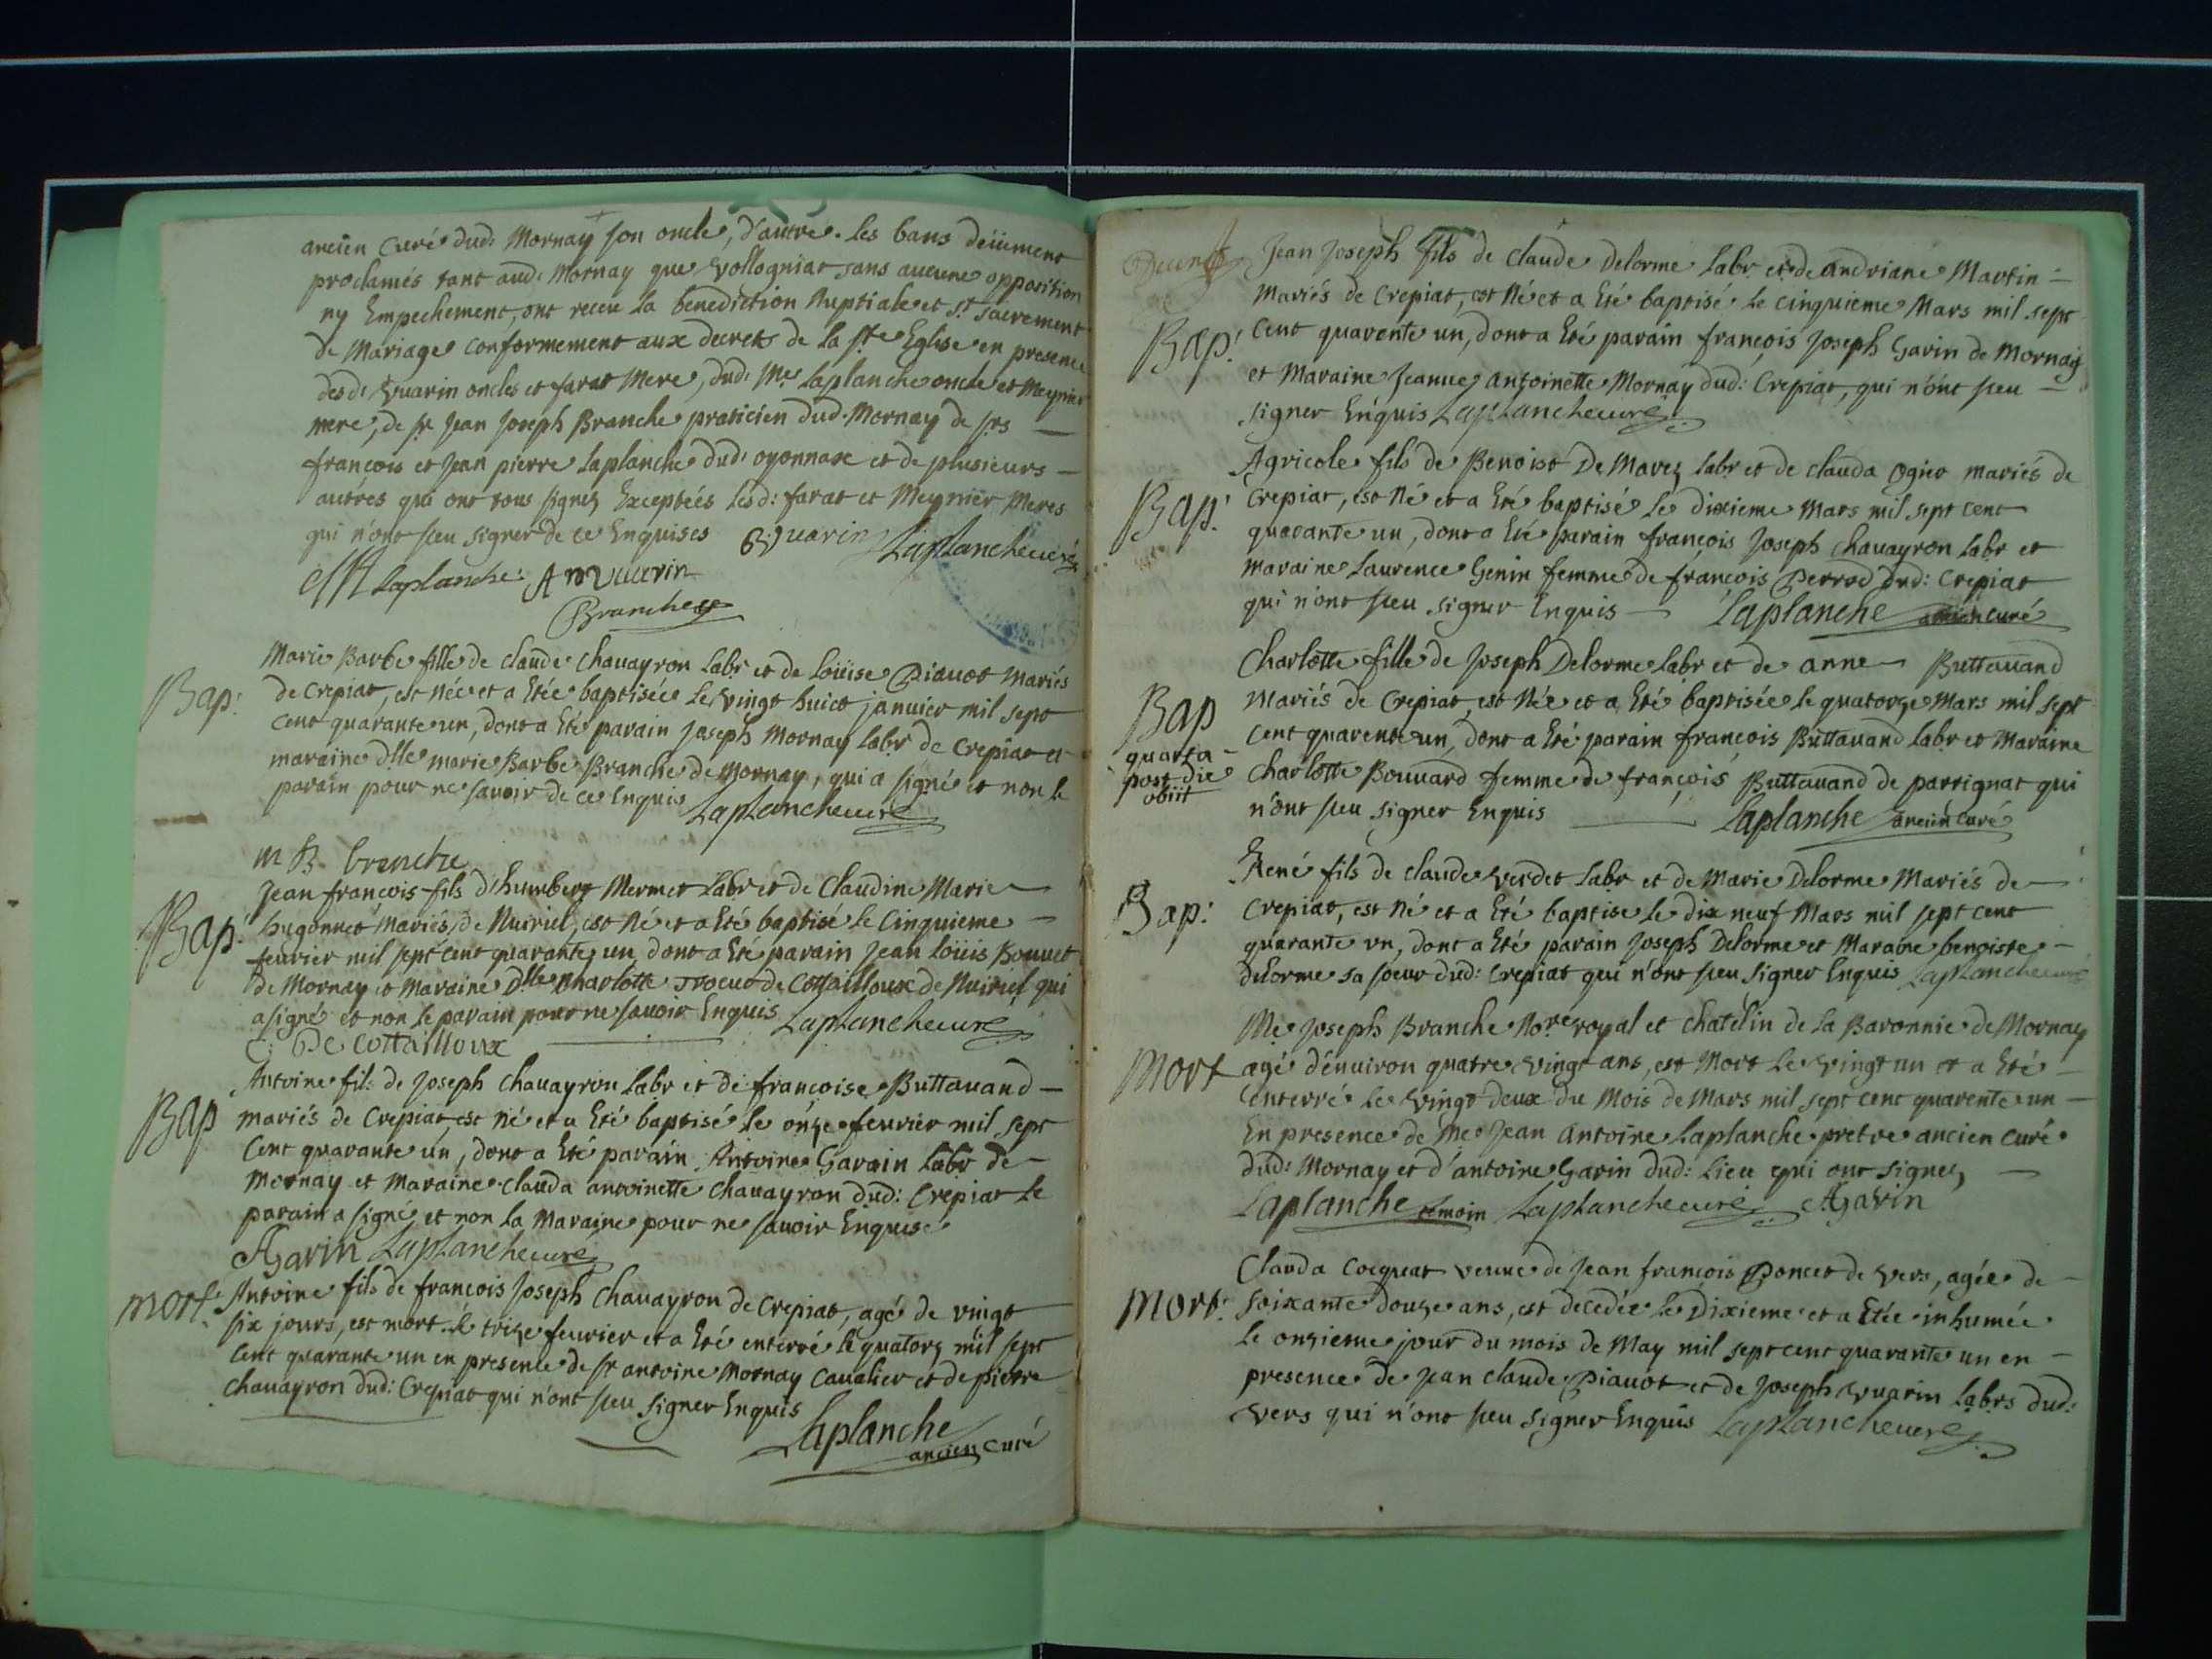 ancien Curé dud: Mornay son oncle, d'autre. les bans deüement
proclamés tant aud: Mornay que Vollogniat sans aucune opposition
ny Empechement, ont receu la benediction Nuptiale et st sacrement
de Mariage conformement aux decrets de la ste Eglise en presence
desd: Vuarin oncles et farat Mere, dud: Me Laplanche oncle et Meynier
mere, de sr Jean Joseph Branche praticien dud. Mornay de srs
françois et Jean pierre Laplanche dud: oyonnax et de plusieurs
autres qui ont tous signez Exceptées lesd: farat et Meynier Meres
qui n'ont sceu signer de ce Enquises Vuarin Laplanche curé
Laplanche Vuarin
Branche
Bap:
Marie Barbe fille de claude Chavayron Labr et de Loüise Piavot Mariés
de Crepiat, est Née et a Etée baptisée le vingt huict janvier mil sept
cent quarante un, dont a Eté parain Joseph Mornay labr de Crepiat et
maraine dlle marie Barbe Branche de Mornay, qui a signé et non le
parain pour ne savoir de ce Enquis Laplanche curé
m B. branche
Bap:
Jean françois fils d'humbert Mermet Labr et de Claudine Marie
hugonnet Mariés de Nuiriel, est Né et a Eté baptisé le Cinquieme
fevrier mil sept cent quarante un, dont a Eté parain Jean Loüis Bouvet
de Mornay et Maraine Dlle Charlotte Trocut de Cottailloux de Nuiriel qui
a signé et non le parain pour ne savoir Enquis Laplanche curé
C: De Cottailloux
Bap
Antoine fils de Joseph Chavayron Labr et de francoise Buttavand
mariés de Crepiat est Né et a Eté baptisé le onze fevrier mil sept
cent quarante un, dont a Eté parain Antoine Garin Labr de
Mornay et Maraine clauda antoinette Chavayron dud: Crepiat le
parain a signé et non la Maraine pour ne savoir Enquise
AGarin Laplanche curé
mort:
Antoine fils de françois Joseph Chavayron de Crepiat, agé de vingt
six jours, est mort le treize fevrier et a Eté enterré le quatorz mil sept
cent quarante un en presence de sr antoine Mornay Cavalier et de pierre
Chavayron dud: Crepiat qui n'ont sceu signer Enquis
Laplanche
ancien curé
Jean Joseph fils de claude Delorme Labr et de andriane Martin
Bap:
Mariés de Crepiat, est Né et a Eté baptisé le Cinquieme Mars mil sept
cent quarente un, dont a Eté parain françois Joseph Garin de Mornay
et Maraine Jeanne antoinette Mornay dud: Crepiat, qui n'ont sceu
signer Enquis Laplanche curé
Bap:
Agricole fils de Benoist De Marez labr et de clauda ogier mariés de
Crepiat, est Né et a Eté baptisé le dixieme Mars mil sept cent
quarante un, dont a Eté parain françois Joseph Chavayron labr et
maraine Laurence Genin femme de françois Perrod dud: Crepiat
qui n'ont sceu signer Enquis Laplanche ancien curé
Bap
quarta
post die
obiit
Charlotte fille de Joseph Delorme labr et de anne Buttavand
Mariés de Crepiat, est Née et a Eté baptisée le quatorze Mars mil sept
cent quarente un, dont a Eté parain françois Buttavand labr et Maraine
Charlotte Bouvard femme de françois Buttavand de partignat qui
n'ont sceu signer Enquis Laplanche ancien curé
Bap:
René fils de claude Verdet Labr et de Marie Delorme Mariés de
Crepiat, est Né et a Eté baptise le dix neuf Mars mil sept cent
quarante un, dont a Eté parain Joseph Delorme et Maraine benoiste
delorme sa soeur dud: Crepiat qui n'ont sceu signer Enquis Laplanche curé
Mort
Me Joseph Branche Nore royal et chatelin de la Baronnie de Mornay
agé d'environ quatre vingt ans, est Mort le vingt un et a Eté
enterré le vingt deux du Mois de Mars mil sept cent quarente un
En presence de Me Jean Antoine Laplanche pretre ancien curé
dud: Mornay et d'antoine Garin dud: Lieu qui ont signez
Laplanche temoin Laplanche curé AGarin
Mort:
Clauda Cocquat veuve de Jean françois Poncet de Vers, agée de
soixante douze ans, est decedée le Dixieme et a Etée inhumée
le onzieme jour du mois de May mil sept cent quarante un en
presence de Jean claude Piavot et de Joseph Vuarin labrs dud:
Vers qui n'ont sceu signer Enquis Laplanche curé